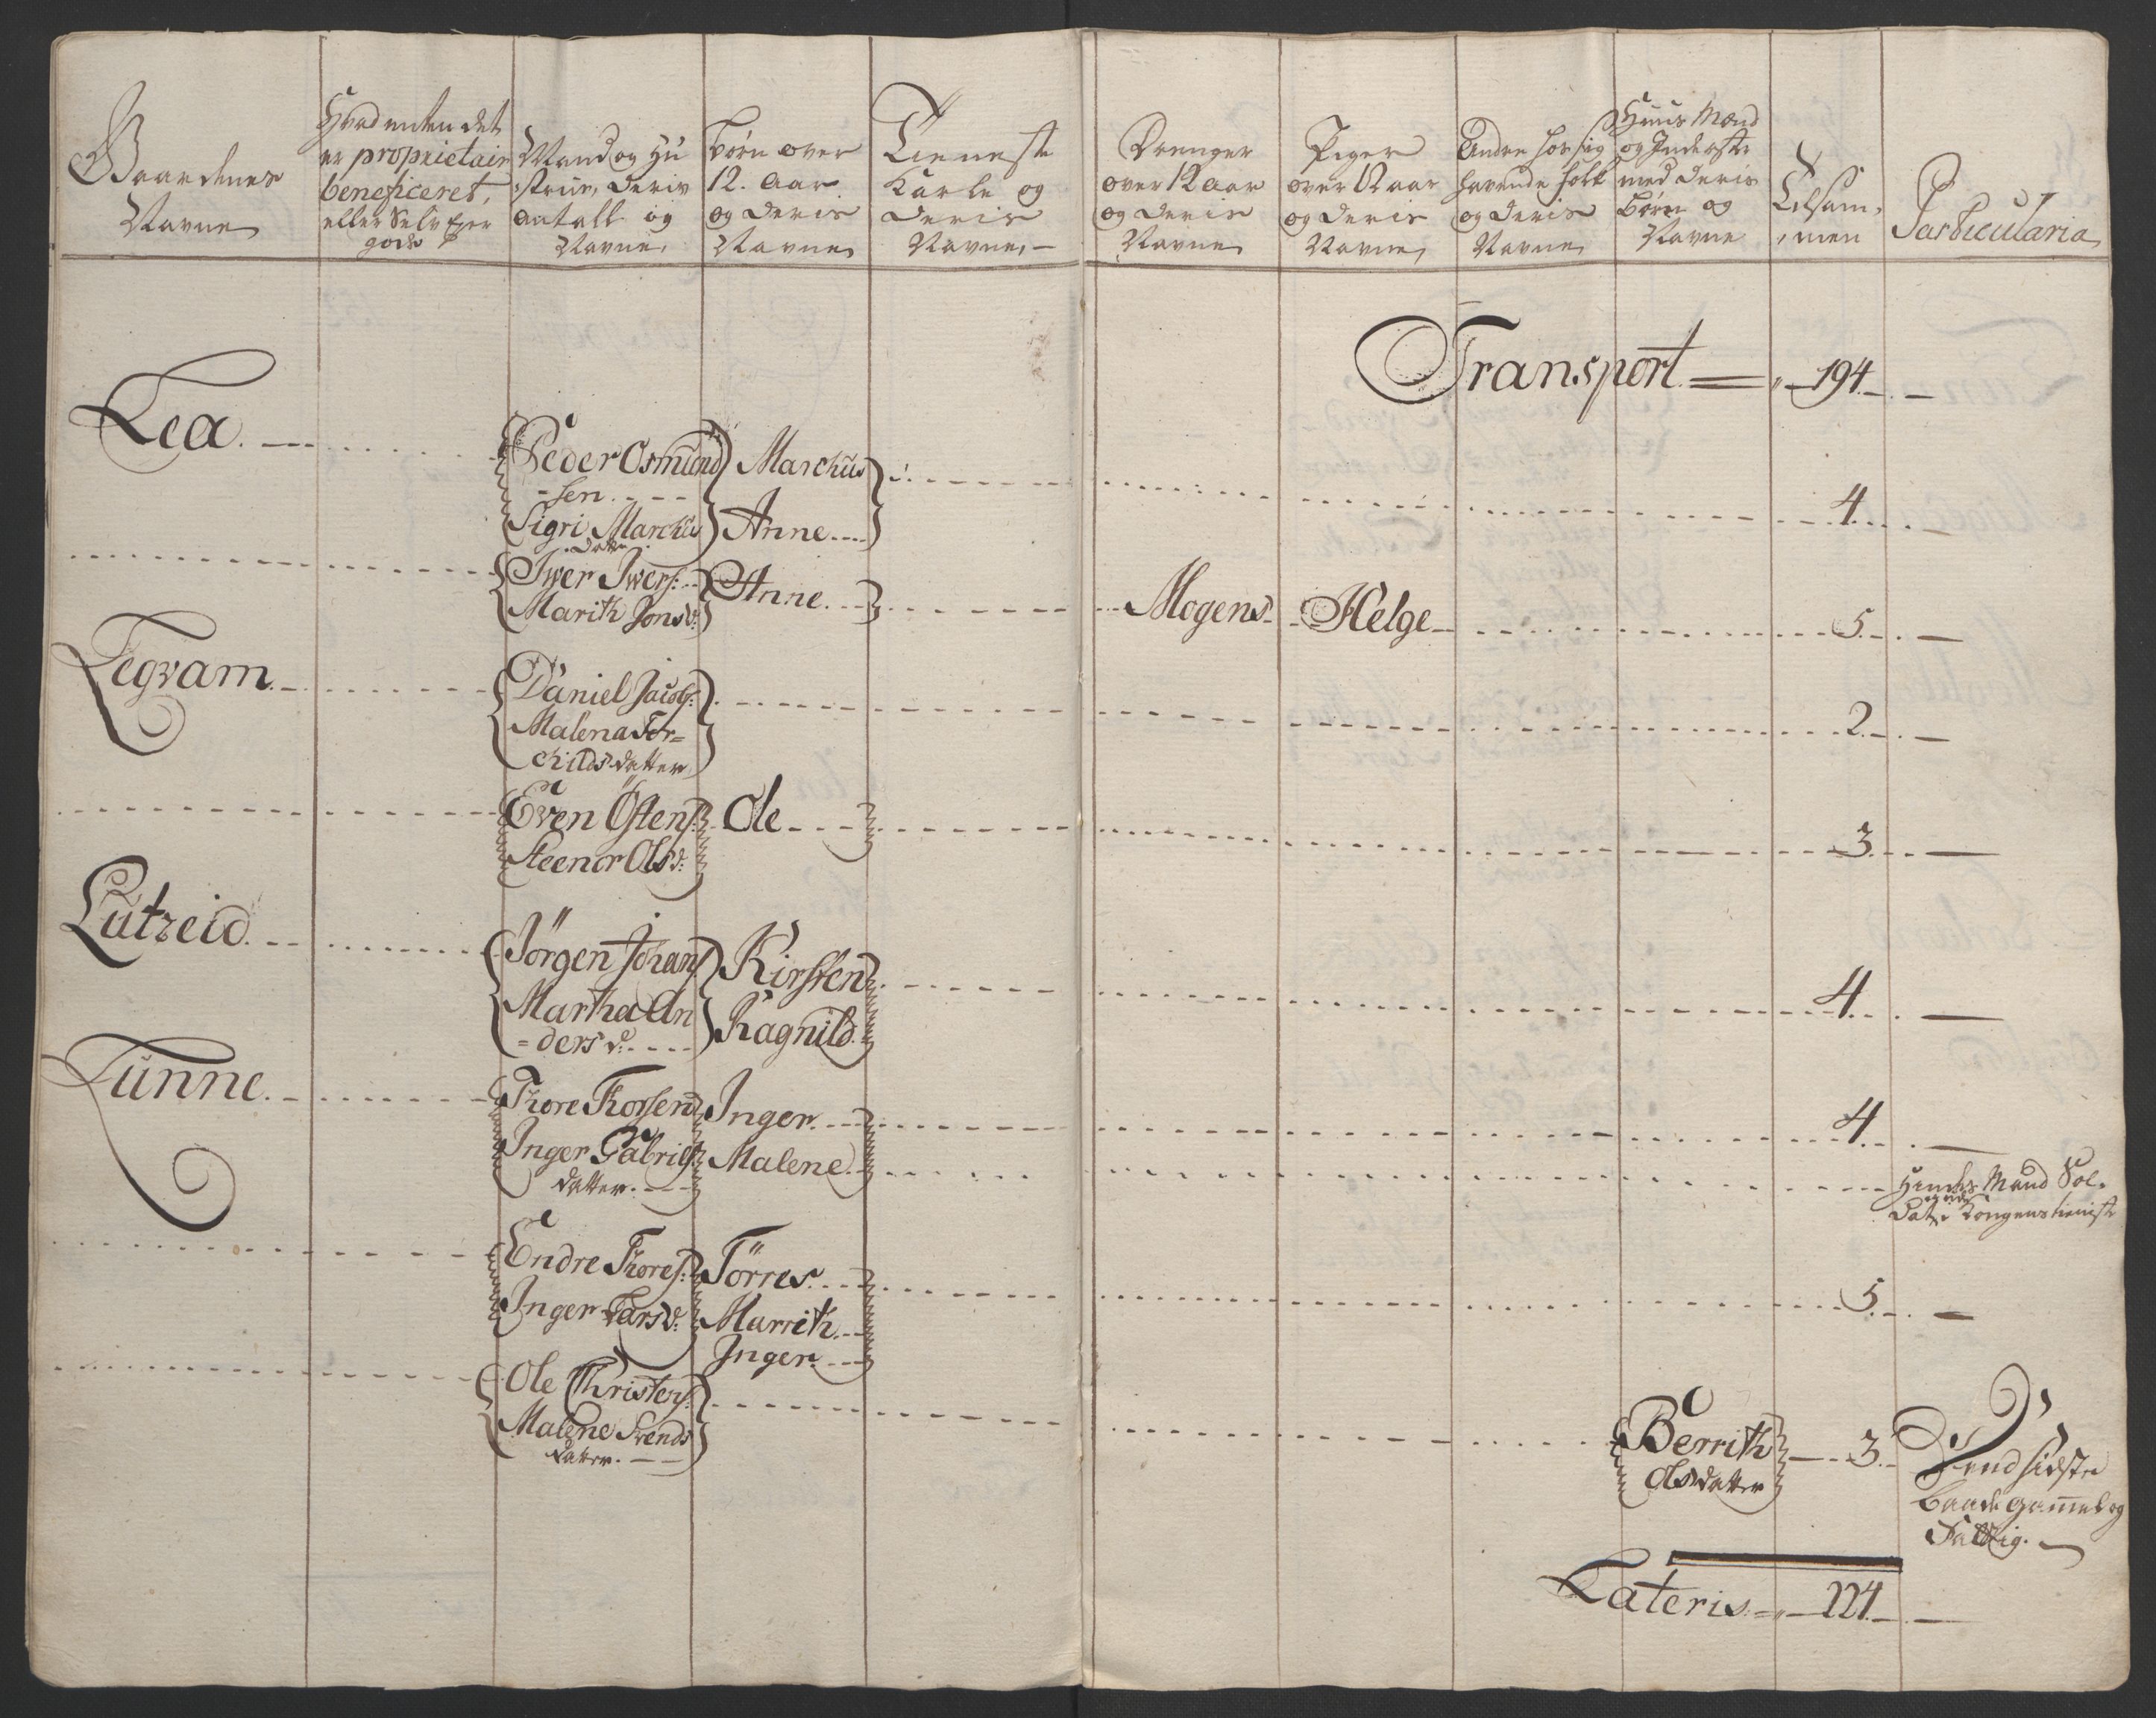 Gaardenes
Navne
Hvad enten det
er proprietair
beneficeret,
eller Selv Eyer
gods
Mand og Hu
strue, deris
antall og
Navne
børn over
12. aar
og deris
Navne
Tieneste
Karle og
deris
Navne
Drenger
over 12 aar
og deris
Navne
Piger
over 12 aar
og deris
Navne
Andre for sig
havende folk
og deris
Navne
Huus Mænd
og Inderste
med deris
børn og
Navne
Tilsam-
men
Particularia
Transport = 194
Lea
Peder Osmund
-sen
Sigri Marchus
datter
Marchus
Anne
4
Iwer Iwers:
Marith Jonsd:
Anne
Mogens
Helge
5
Tegvam
Daniel Jacobs:
Malena Tor=
childsdatter
2
Even Östens:
Steenor Olsd:
Ole
3
Lutzeid
Jörgen Johans
Martha An
=dersd:
Kirsten
Ragnild
4
Tunne
Thore Thorsen
Inger Gabriels
datter
Inger
Malene
4
Hendes Mand Sol-
dat i Kongens tieniste
Endre Thores:
Inger Larsd:
Törres
Marrith
Inger
5
Ole Christens:
Malene Svends
datter
Berrith
Olsdatter
3
Dend sidste
baade gammel og
Fattig.
Lateris = 224